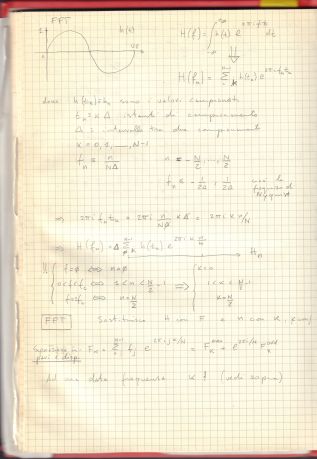 FFT
h(t)
H(f) = ∫ h(t) e^{2πift} dt
H(f_n) = Σ h(t_k) e^{2πi f_n t_k}
dove h(t_k) = h_k sono i valori campionati
t_k = kΔ istante di campionamento
Δ = intervallo tra due campionamenti
k = 0, 1, ..., N-1
f_n = n/NΔ n = -N/2, ..., N/2
f_n = -1/2Δ, 1/2Δ
frequenza di Nyquist
⇒ 2πi f_n t_k = 2πi n/NΔ kΔ = 2πi k n/N
⇒ H(f_n) = Δ Σ h(t_k) e^{2πi k n/N} → H_n
f=0 ⇔ n=0 k=0
0<f<f_c ⇔ 1<n<N/2-1 ⇒ 1<k<N/2-1
f=f_c ⇔ n=N/2 k=N/2
FFT Sostituisco H con F e n con k,
pari e disp. F_k = Σ f_j e^{2πijk/N} = F_k^{even} + e^{2πik/N} F_k^{odd}
Ad una data frequenza k ? (vedi sopra)